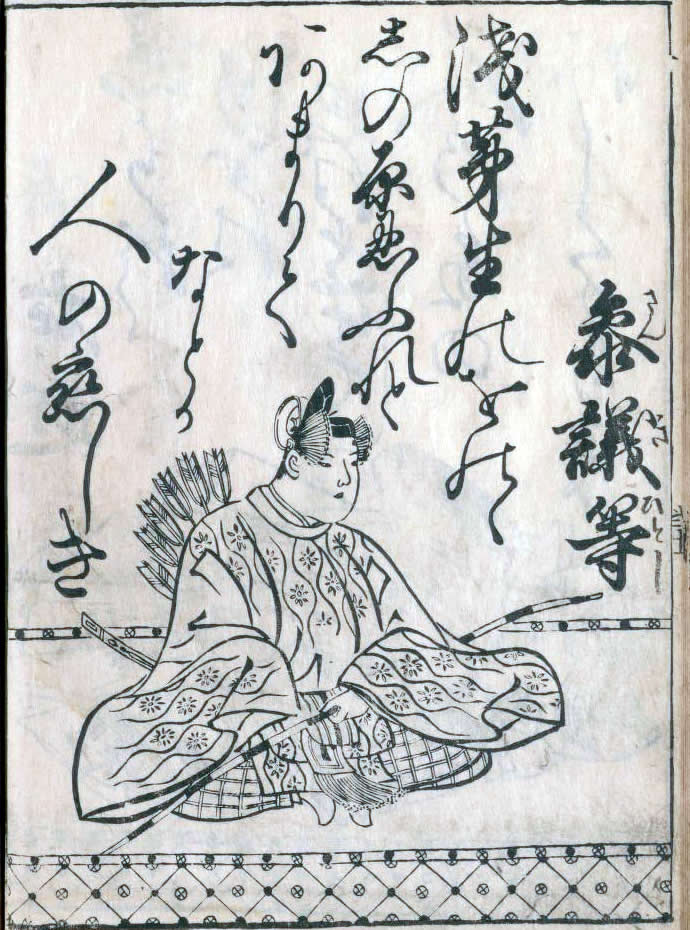 參議等
さんきひとし
淺茅生のをのゝ
しの原忍ふれと
あまりて
なとか
人の恋しき